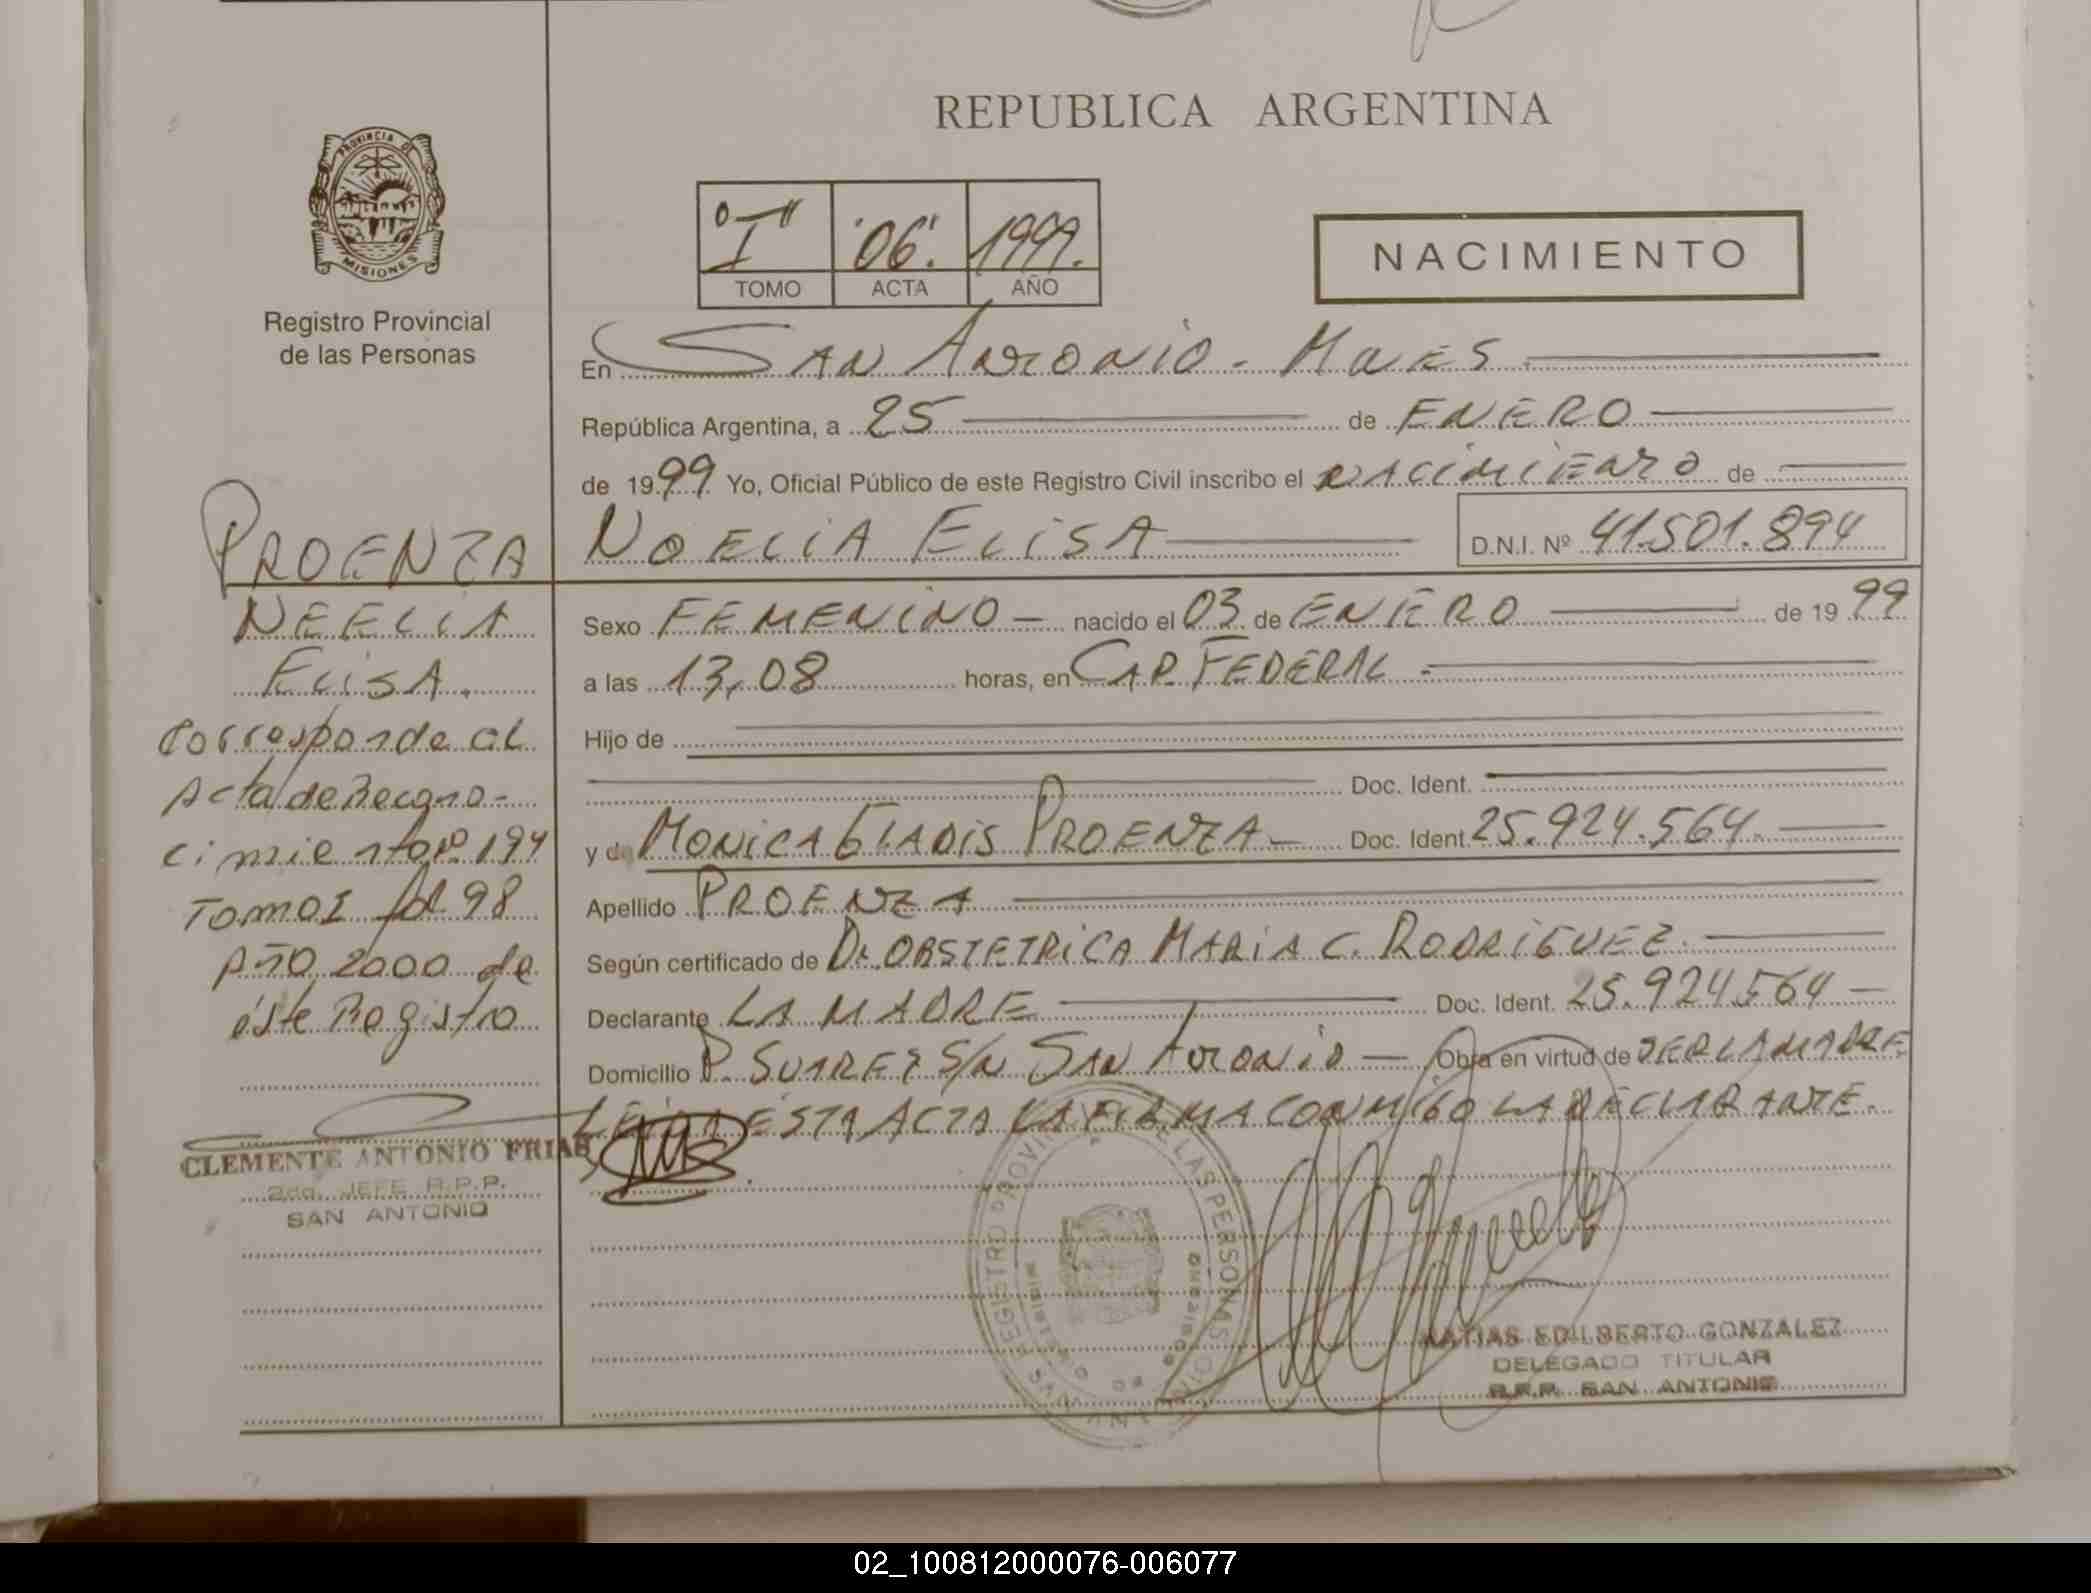 REPUBLICA ARGENTINA
PROVINCIA DE
MISIONES
Registro Provincial
de las Personas
"I" "06". 1999.
TOMO ACTA AÑO
NACIMIENTO
En SAN ANTONIO - MNES
República Argentina, a 25 de ENERO
de 1999 Yo, Oficial Público de este Registro Civil inscribo el NACIMIENTO de
NOELIA ELISA D.N.I. Nº 41.501.894
Sexo FEMENINO - nacido el 03 de ENERO de 1999
a las 13,08 horas, en CAP. FEDERAL -
Hijo de
Doc. Ident.
y de MONICA GLADIS PROENZA - Doc. Ident. 25.924.564.
Apellido PROENZA
Según certificado de OBSTETRICA MARIA C. RODRIGUEZ.
Declarante LA MADRE Doc. Ident. 25.924.564 -
Domicilio P. SUAREZ S/N SAN ANTONIO - Obra en virtud de SER LA MADRE
LEIDA ESTA ACTA LA FIRMA CONMIGO LA DECLARANTE.
PROENZA
NEELIA
ELISA.
Corresponde al
Acta de Recono-
cimiento Nº 194
Tomo I fol 98
Año 2000 de
éste Registro
CLEMENTE ANTONIO FRIAS
2do. JEFE R.P.P.
SAN ANTONIO
REGISTRO PROVINCIAL DE LAS PERSONAS
MATIAS EDILBERTO GONZALEZ
DELEGADO TITULAR
R.P.P. SAN ANTONIO
02_100812000076-006077